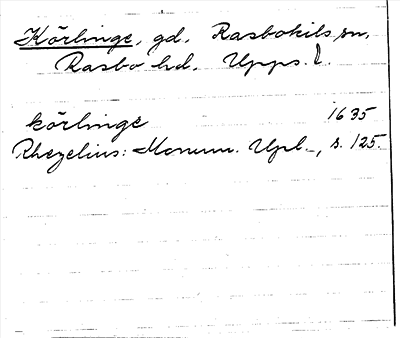 Körlinge, gd. Rasbokils sn.
Rasbo hd. Upps. l.
körlinge 1635
Rhezelius: Monum. Upl., s. 125.